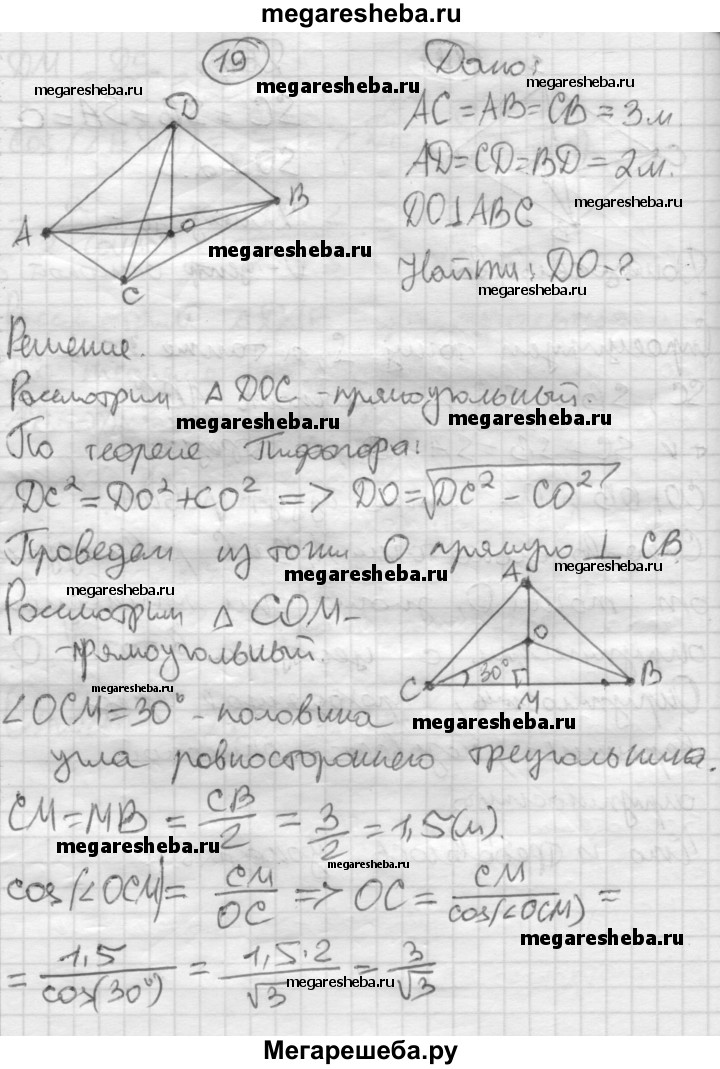 megaresheba.ru
19
Дано:
megaresheba.ru
megaresheba.ru
megaresheba.ru
D
AC=AB=CB=3м
AD=CD=BD=2м.
megaresheba.ru
A
O
B
DO⊥ABC
megaresheba.ru
megaresheba.ru
C
Найти: DO-?
megaresheba.ru
Решение.
Рассмотрим △ DOC - прямоугольный.
megaresheba.ru
megaresheba.ru
По теореме Пифагора:
DC²=DO²+CO² => DO=√DC²-CO²
Проведем из точки O прямую ⊥ CB
megaresheba.ru
megaresheba.ru
megaresheba.ru
Рассмотрим △ COM-
-прямоугольный.
A
O
C
30°
M
B
megaresheba.ru
∠OCM=30°-половина
megaresheba.ru
угла равностороннего треугольника.
CM=MB=CB/2=3/2=1,5(м).
megaresheba.ru
megaresheba.ru
cos(∠OCM)=CM/OC => OC=CM/cos(∠OCM)=
megaresheba.ru
=1,5/cos(30°)=1,5·2/√3=3/√3
megaresheba.ru
Мегарешеба.ру